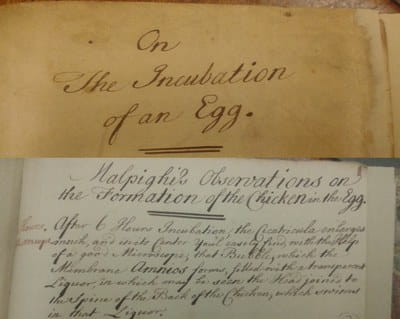 On
The Incubation
of an Egg.
Malpighi's Observations on
the Formation of the Chicken in the Egg.
After 6 Hours Incubation, the Cicatricula enlarges
much, and in its Center You'll easily find, with the Help
of a good Microscope, that Bubble, which the
Membrane Amneos forms, filled with a transparent
Liquor, in which may be seen the Head joined to
the Spine of the Back of the Chicken, which swims
in that Liquor.